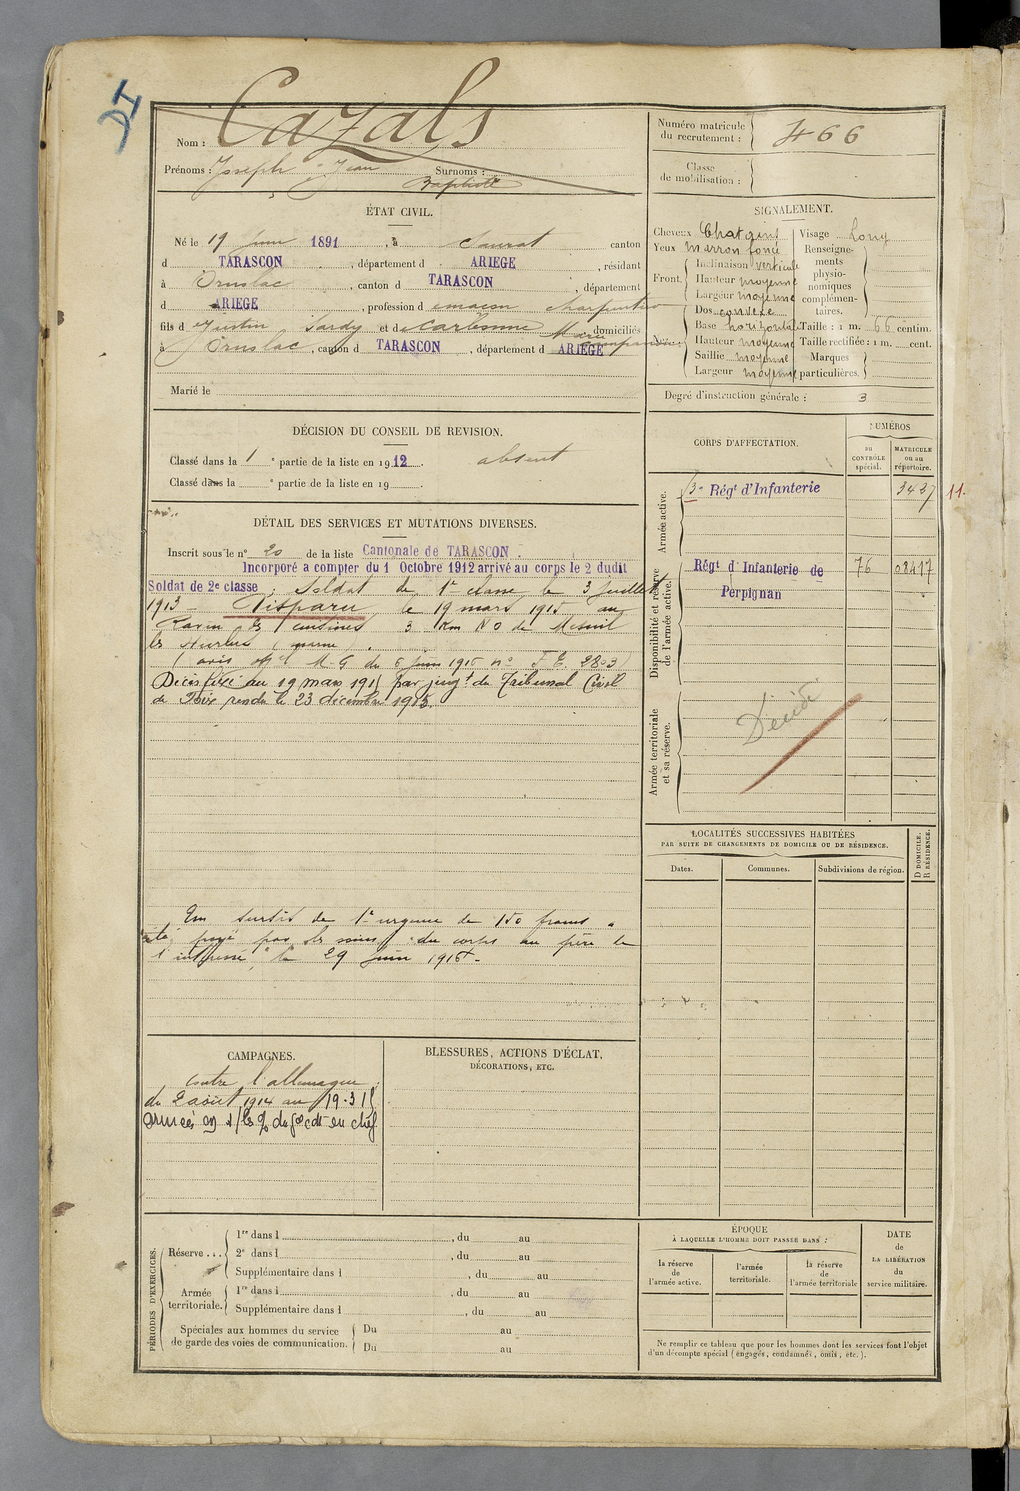 DI
Nom : Cazals
Prénoms : Joseph Jean Surnoms :
Baptiste
ÉTAT CIVIL.
Né le 19 Juin 1891, à Saurat canton
d TARASCON, département d ARIEGE, résidant
à Ornolac, canton d TARASCON, département
d ARIEGE, profession d maçon charpentier
fils d Justin Sardy et d Carbonne Marie domiciliés
à Ornolac, canton d TARASCON, département d ARIEGE
Marié le
DÉCISION DU CONSEIL DE REVISION.
Classé dans la 1 e partie de la liste en 1912. absent
Classé dans la e partie de la liste en 19 .
DÉTAIL DES SERVICES ET MUTATIONS DIVERSES.
Inscrit sous le n° 20 de la liste Cantonale de TARASCON.
Incorporé a compter du 1 Octobre 1912 arrivé au corps le 2 dudit
Soldat de 2e classe ; Soldat de 1re classe le 3 Juillet
1913 — Disparu le 19 mars 1915 au
Ravin des cuisines 3 Km NO de Mesnil
les Hurlus (marne).
(avis offel M.G du 6 Juin 1915 n° T.E. 2803)
Décès fixé au 19 mars 1915 par jugt du Tribunal Civil
de Foix rendu le 23 décembre 1915.
Un secours de 1re urgence de 150 francs a
été payé par les soins du corps au père de
l'intéressé, le 29 Juin 1915.
CAMPAGNES.
Contre l'allemagne
du 2 août 1914 au 19-3-15
armées
BLESSURES, ACTIONS D'ÉCLAT,
DÉCORATIONS, ETC.
PÉRIODES D'EXERCICES.
Réserve ...
1re dans l , du au
2e dans l , du au
Supplémentaire dans l , du au
Armée
territoriale.
1re dans l , du au
Supplémentaire dans l , du au
Spéciales aux hommes du service
de garde des voies de communication.
Du au
Du au
Numéro matricule
du recrutement : 466
Classe
de mobilisation :
SIGNALEMENT.
Cheveux Chatains
Yeux marron foncé
Front.
Inclinaison verticale
Hauteur moyenne
Largeur moyenne
Dos convexe
Base horizontale
Hauteur moyenne
Saillie moyenne
Largeur moyenne
Visage Long
Renseigne-
ments
physio-
nomiques
complémen-
taires.
Taille : 1 m. 66 centim.
Taille rectifiée : 1 m. cent.
Marques
particulières.
Degré d'instruction générale : 3
CORPS D'AFFECTATION.
NUMÉROS
DU
CONTRÔLE
spécial.
MATRICULE
ou au
répertoire.
Armée active.
3e Régt d'Infanterie 3427 11.
Disponibilité et réserve
de l'armée active.
Régt d'Infanterie de 76 08417
Perpignan
Armée territoriale
et sa réserve.
Décédé
LOCALITÉS SUCCESSIVES HABITÉES
PAR SUITE DE CHANGEMENTS DE DOMICILE OU DE RÉSIDENCE.
Dates.
Communes.
Subdivisions de région.
D DOMICILE.
R RÉSIDENCE.
ÉPOQUE
À LAQUELLE L'HOMME DOIT PASSER DANS :
la réserve
de
l'armée active.
l'armée
territoriale.
la réserve
de
l'armée territoriale
DATE
de
LA LIBÉRATION
du
service militaire.
Ne remplir ce tableau que pour les hommes dont les services font l'objet
d'un décompte spécial (engagés, condamnés, omis, etc.).